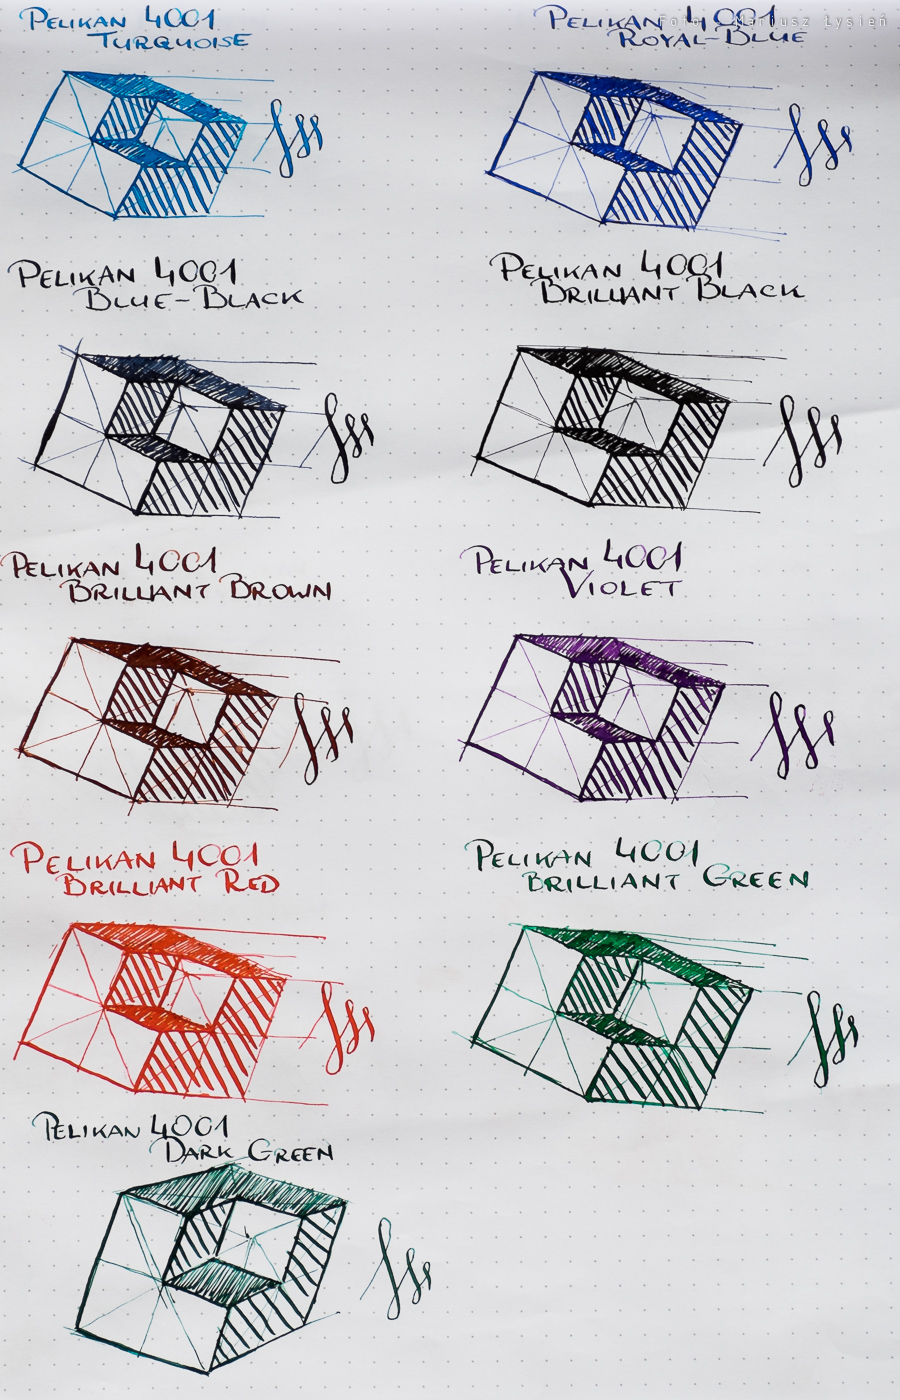 PELIKAN 4001
TURQUOISE
PELIKAN 4001
ROYAL-BLUE
Foto: Mariusz Łysień
PELIKAN 4001
BLUE-BLACK
PELIKAN 4001
BRILLIANT BLACK
PELIKAN 4001
BRILLIANT BROWN
PELIKAN 4001
VIOLET
PELIKAN 4001
BRILLIANT RED
PELIKAN 4001
BRILLIANT GREEN
PELIKAN 4001
DARK GREEN